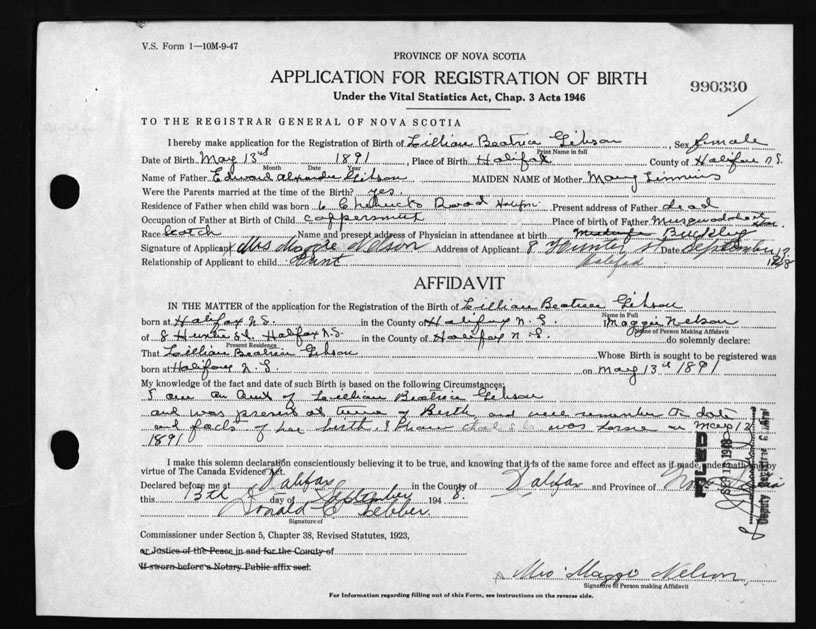 V.S. Form 1—10M-9-47
PROVINCE OF NOVA SCOTIA
APPLICATION FOR REGISTRATION OF BIRTH
990330
Under the Vital Statistics Act, Chap. 3 Acts 1946
TO THE REGISTRAR GENERAL OF NOVA SCOTIA
I hereby make application for the Registration of Birth of Lillian Beatrice Gibson, Sex female
Print Name in full
Date of Birth May 13th 1891, Place of Birth Halifax County of Halifax N.S.
Month Date Year
Name of Father Edward Alexander Gibson MAIDEN NAME of Mother Mary
Were the Parents married at the time of the Birth? yes.
Residence of Father when child was born 6 Chebucto Road Halifax Present address of Father dead
Occupation of Father at Birth of Child coppersmith Place of birth of Father Musquodoboit
Race Scotch Name and present address of Physician in attendance at birth Buckley
Signature of Applicant Mrs Maggie Nelson Address of Applicant 8 Hunter St Date September 13
Relationship of Applicant to child Aunt Halifax 1948
AFFIDAVIT
IN THE MATTER of the application for the Registration of the Birth of Lillian Beatrice Gibson
Name in Full
born at Halifax N.S. in the County of Halifax N.S. I Maggie Nelson
Name of Person Making Affidavit
of 8 Hunter St. Halifax N.S. in the County of Halifax N.S. do solemnly declare:
Present Residence
That Lillian Beatrice Gibson Whose Birth is sought to be registered was
born at Halifax N.S. on May 13th 1891
My knowledge of the fact and date of such Birth is based on the following Circumstances:
I am an Aunt of Lillian Beatrice Gibson
and was present at time of Birth and well remember the date
and facts of her birth, I know that she was born on May 13
1891
I make this solemn declaration conscientiously believing it to be true, and knowing that it is of the same force and effect as if made under oath and by
virtue of The Canada Evidence Act.
Declared before me at Halifax in the County of Halifax and Province of Nova Scotia
this 13th day of September 1948.
Donald C. Webber
Signature of
Commissioner under Section 5, Chapter 38, Revised Statutes, 1923,
or Justice of the Peace in and for the County of
If sworn before a Notary Public affix seal.
Mrs Maggie Nelson
Signature of Person making Affidavit
For Information regarding filling out of this Form, see instructions on the reverse side.
SEP 1948
Deputy Registrar General